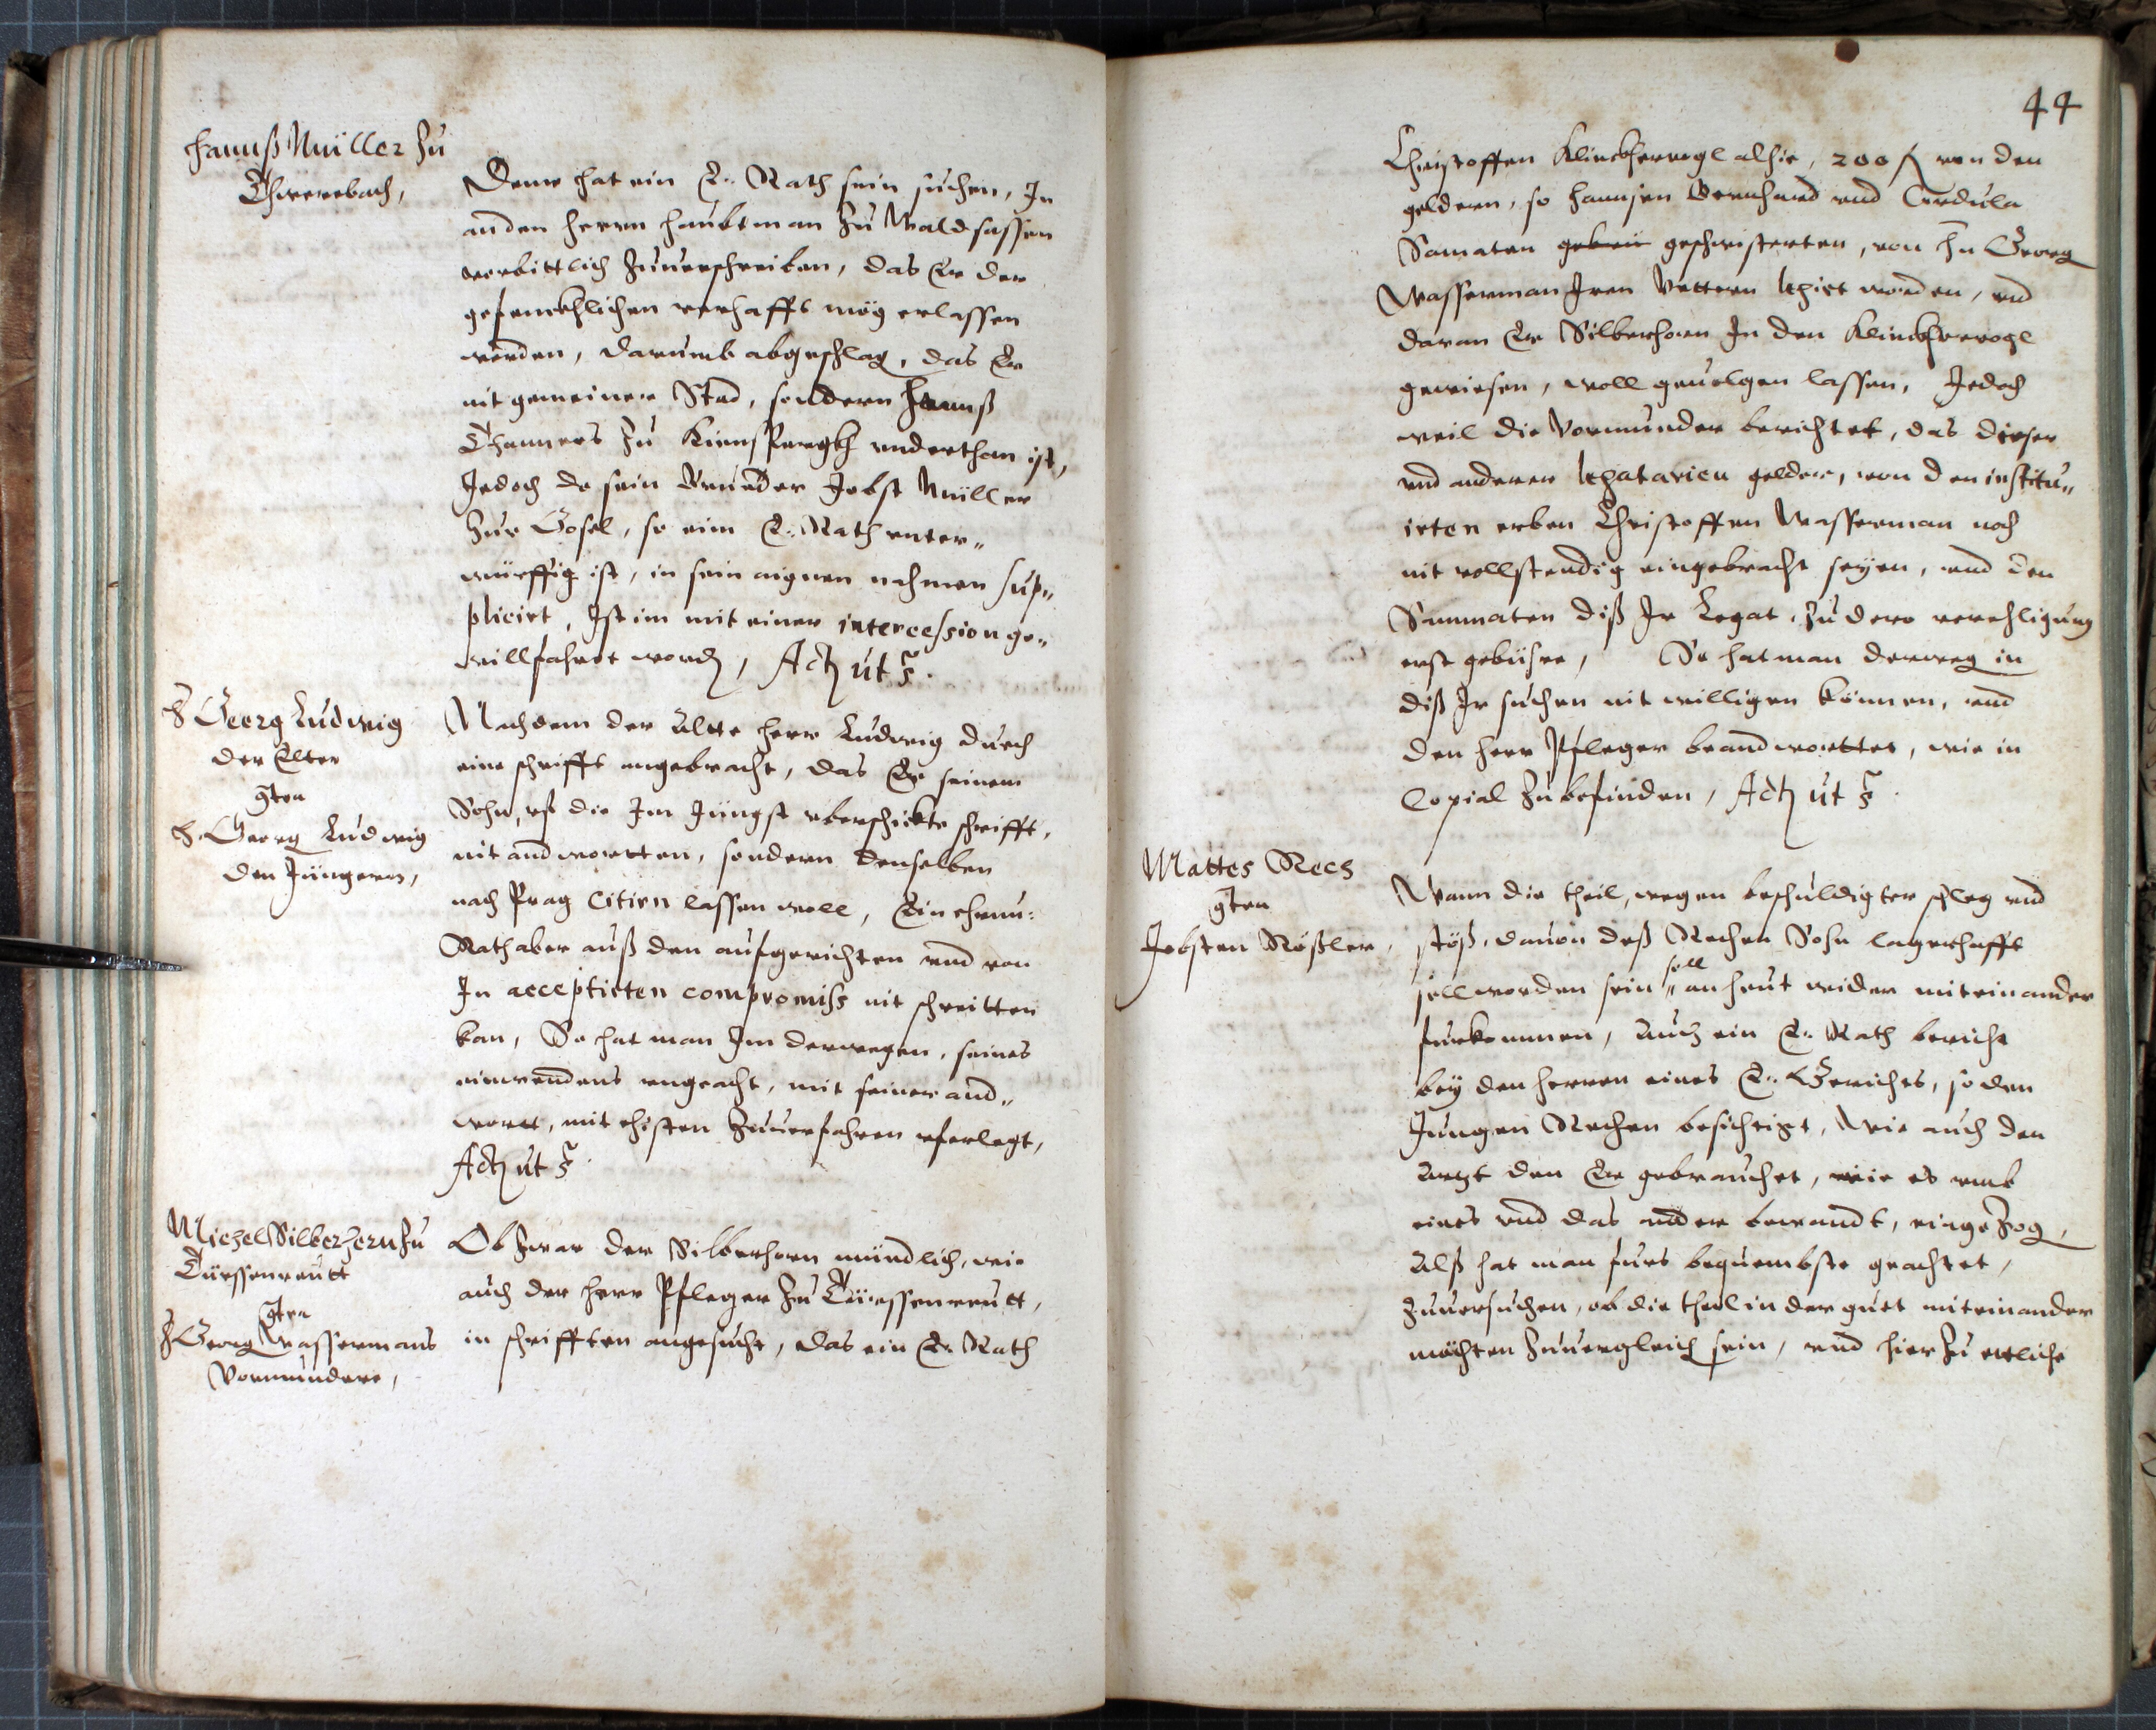 Hannß Müller Zu
Thwerebach,
Deme hat ein E. Rath sein suchen, In
an den herrn haubtman Zu Waldsassen
vorbittlich Zuuerschreiben, das Er der
gefencklichen verhafft mög erlassen
werden, darumb abgeschlag, das Er
nit gemeiner Stad, sondern Hannß
Thanners Zu Kinspergkh underthan ist,
Jedoch do sein Brueder Jobst Müller
Zur Gosel, so eim E. Rath unter„
würffig ist, in sein aignen nahmen sup„
plicirt, Ist im mit einer intercession ge„
willfahrt word, Act ut s.
H Georg Ludwig
der Elter
gten
H. Georg Ludwig
den Jüngern,
Nachdem der Altte herr Ludwig durch
eine schrifft angebracht, das Er seinem
Sohn, uf die Im Jüngst uberschickte schrifft,
nit andwortten, sondern denselben
nach Prag citirn lassen woll, Ein ehrnu:
Rath aber auß den aufgerichten und von
In acceptirten compromiss nit schreitten
kan, So hat man Im derwegen, seines
einwendens ungeacht, mit seiner and„
wortt, mit ehisten Zuuerfahren uferlegt,
Act ut s.
Michel Silberhorn Zu
Türssenreutt
gten
H Georg Wassermans
Vormündere,
Ob Zwar der Silberhorn mündlich, wie
auch der herr Pfleger Zu Türssenreutt,
in schrifften angesucht, das ein E. Rath
44
Christoffen Klinckhervogl alhie, 200 f von den
geldern, so Hannsen Bernhard und Cordula
Samaten gebrü geschwisterten, von Hn Georg
Wasserman Iren Vettern legirt worden, und
daran Er Silberhorn In den Klinckhervogl
gewiesen, woll geuolgen lassen, Jedoch
weil die Vormunder berichtet, das dieser
und anderer legatarien gelder, von den institu„
irten erben Christoffen Wasserman noch
nit vollstendig eingebracht seyen, und den
Sammaten diß Ir Legat, Zu dero verehligung
erst gebühre, So hat man derweg in
diß Ir suchen nit willigen können, und
den herr Pfleger beandworttet, wie in
Copial Zu befinden, Act ut s.
Mattes Rees
gten
Jobsten Rößler,
Wann die theil, wegen beschuldigter schleg und
stöß, dauon deß Rechen Sohn lagerhafft
soll worden sein soll an heut wider miteinander
furkommen, Auch ein E. Rath bericht
bey den herren eines E. Gerichts, so den
Jungen Rechen besichtigt, wie auch den
Artzt den Er gebrauchet, wie es umb
eines und das ander bewandt, eingeZog,
Alß hat man furs bequembste geachtet,
Zuuersuchen, ob die theil in der guet miteinander
möchten Zuuergleich sein, und hierZu ettliche